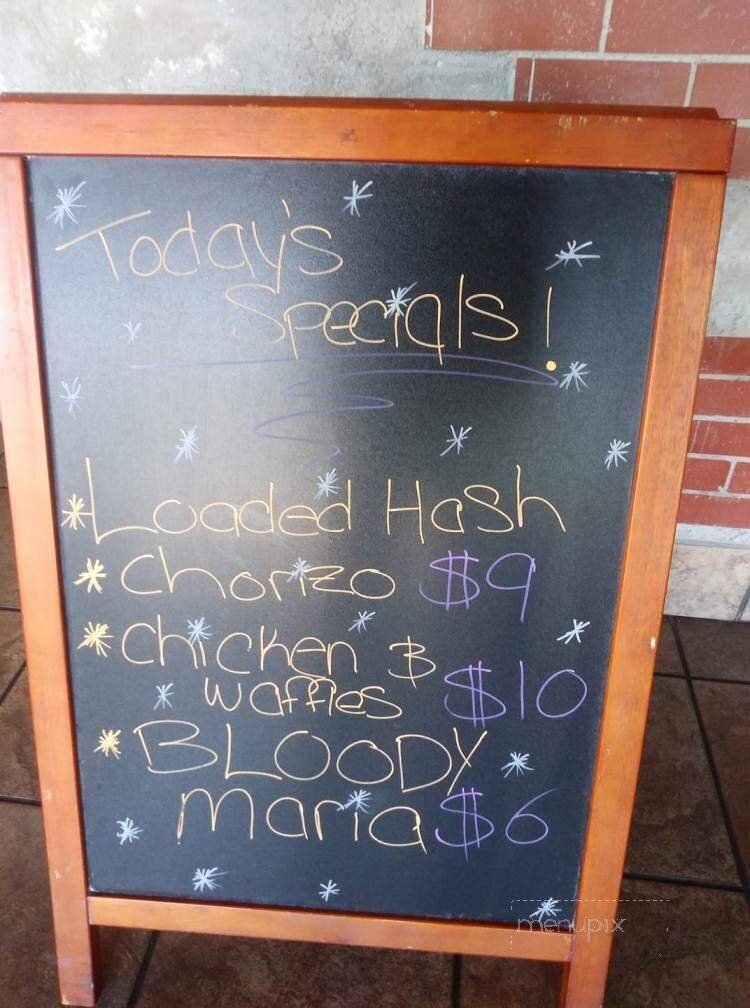 Today's
Specials!
*Loaded Hash
*Chorizo $9
*Chicken &
waffles $10
*BLOODY
maria $6
menupix